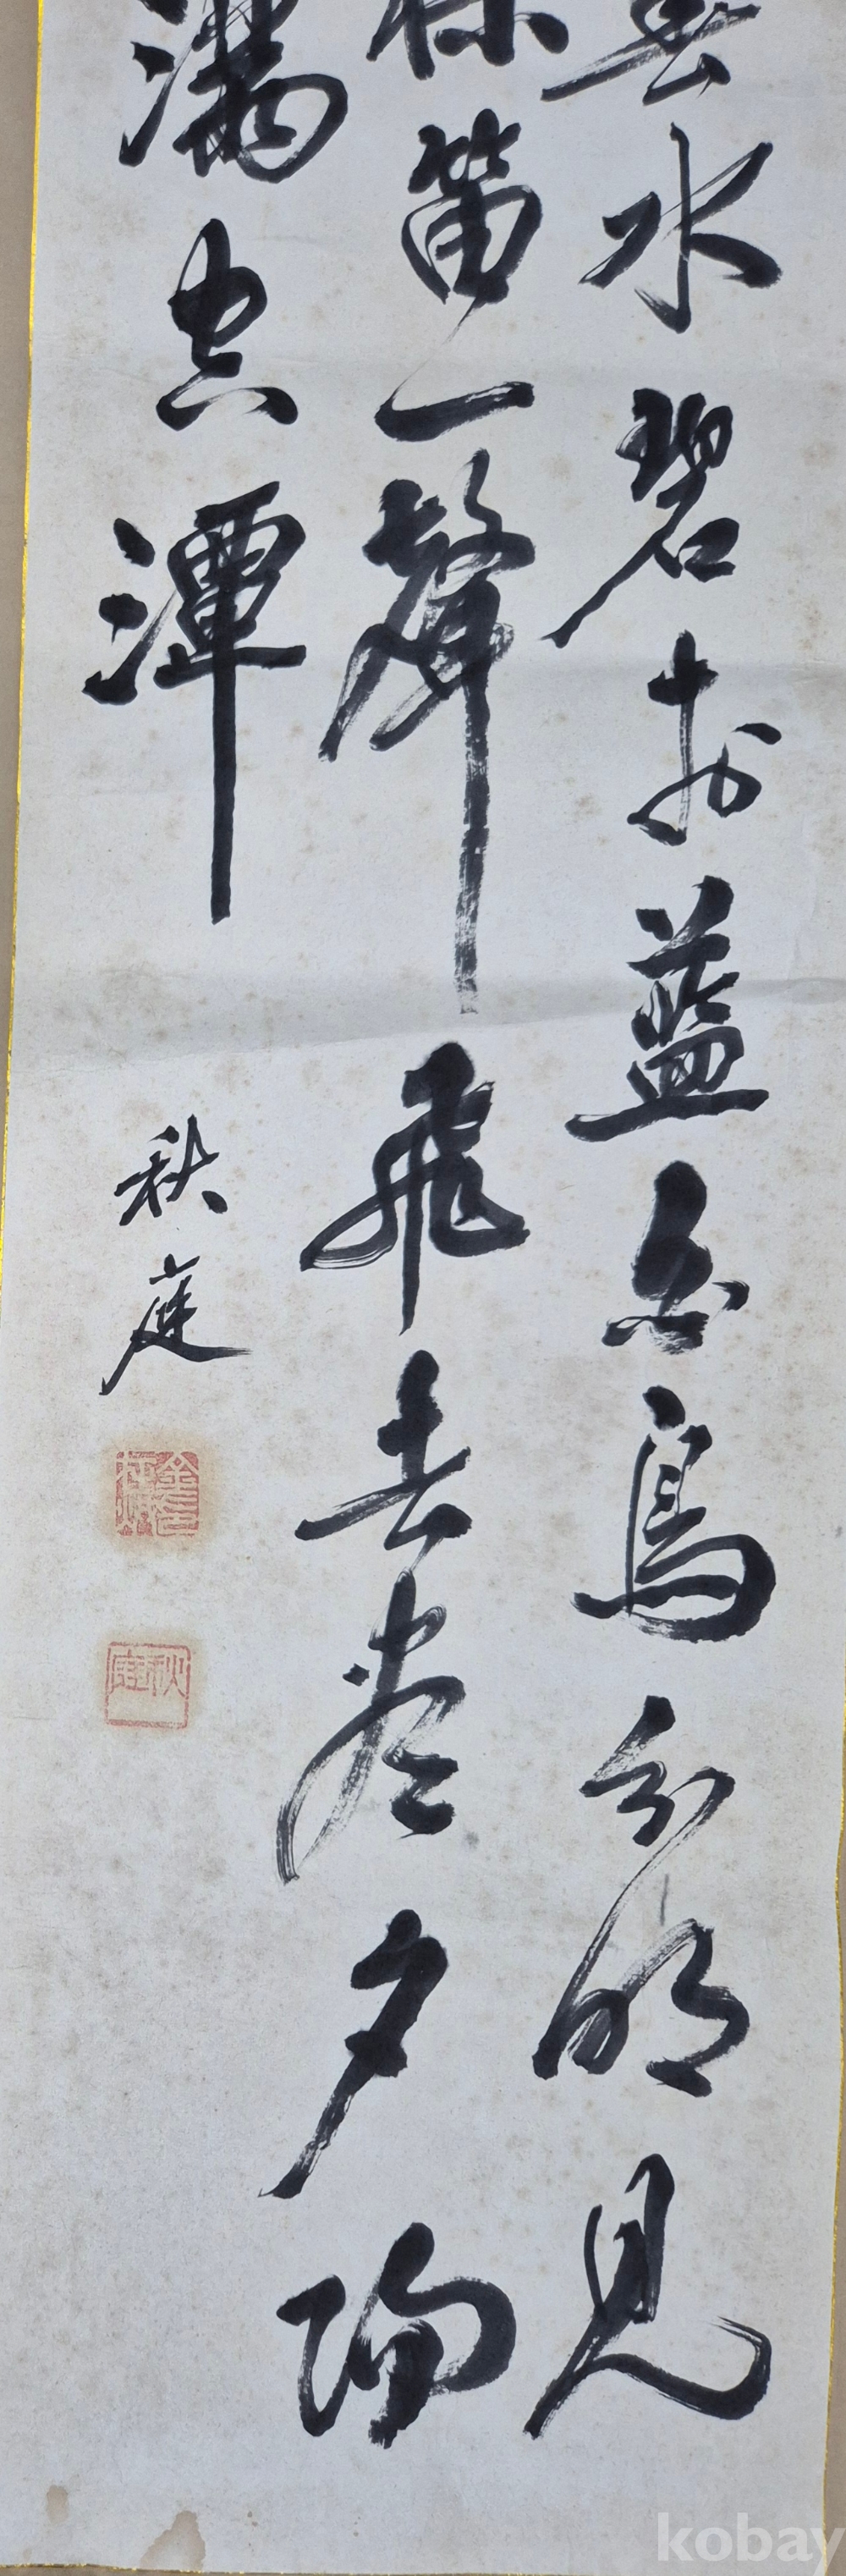 水碧於藍白鳥分明見
笛一聲飛去盡夕陽
滿空潭
秋庭
秋庭
kobay